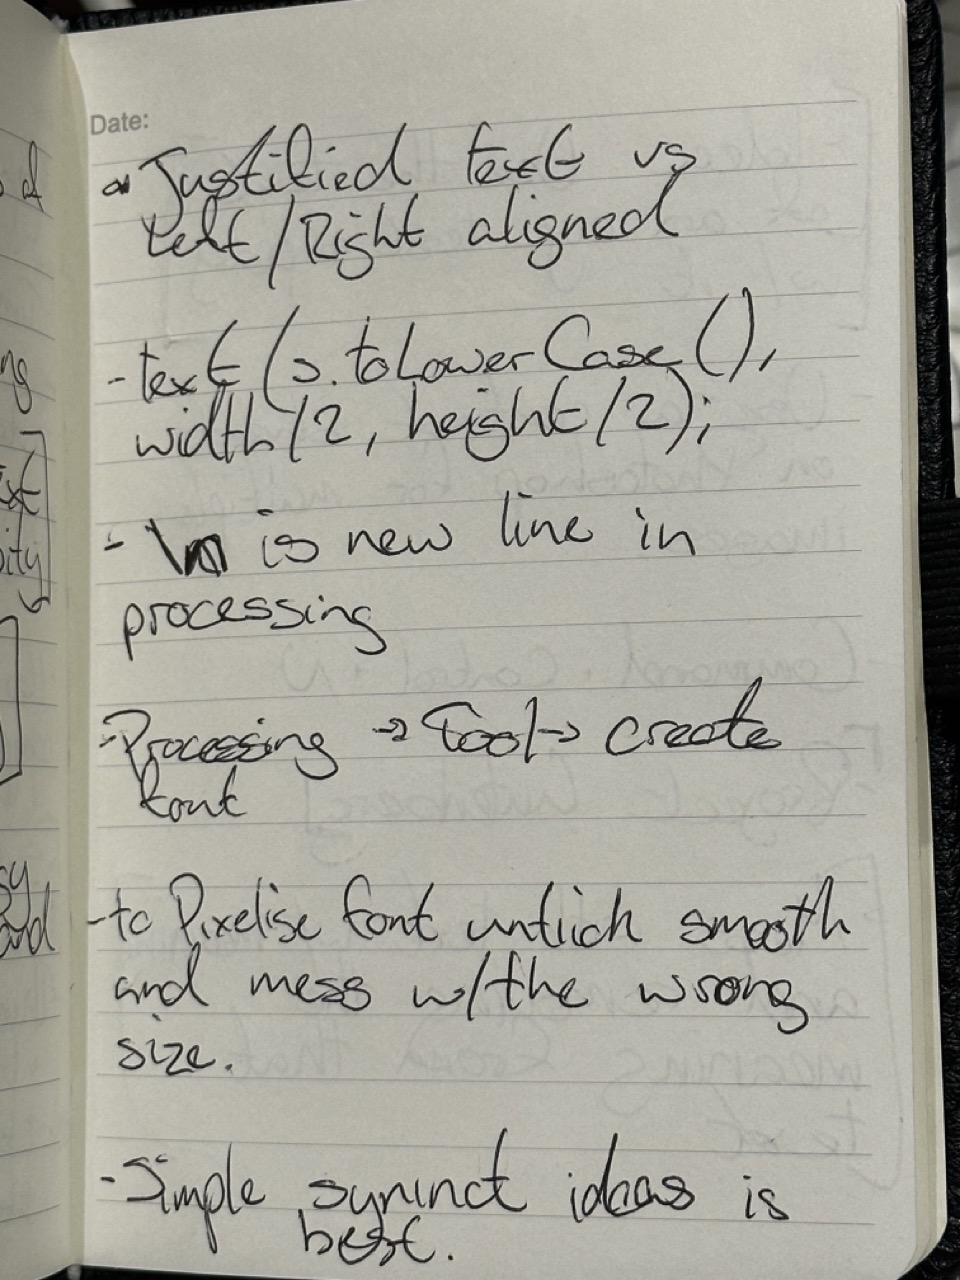 Date:
- Justified text vs
Left/Right aligned
-text(s.toLowerCase(),
width/2, height/2);
- \n is new line in
processing
-Processing → Tool → create
font
-to Pixelise font untick smooth
and mess w/the wrong
size.
-Simple syninct ideas is
best.